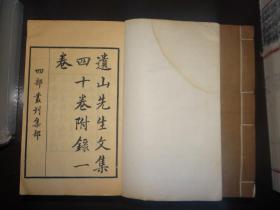 遺山先生文集
四十卷附錄一
卷
四部叢刊集部